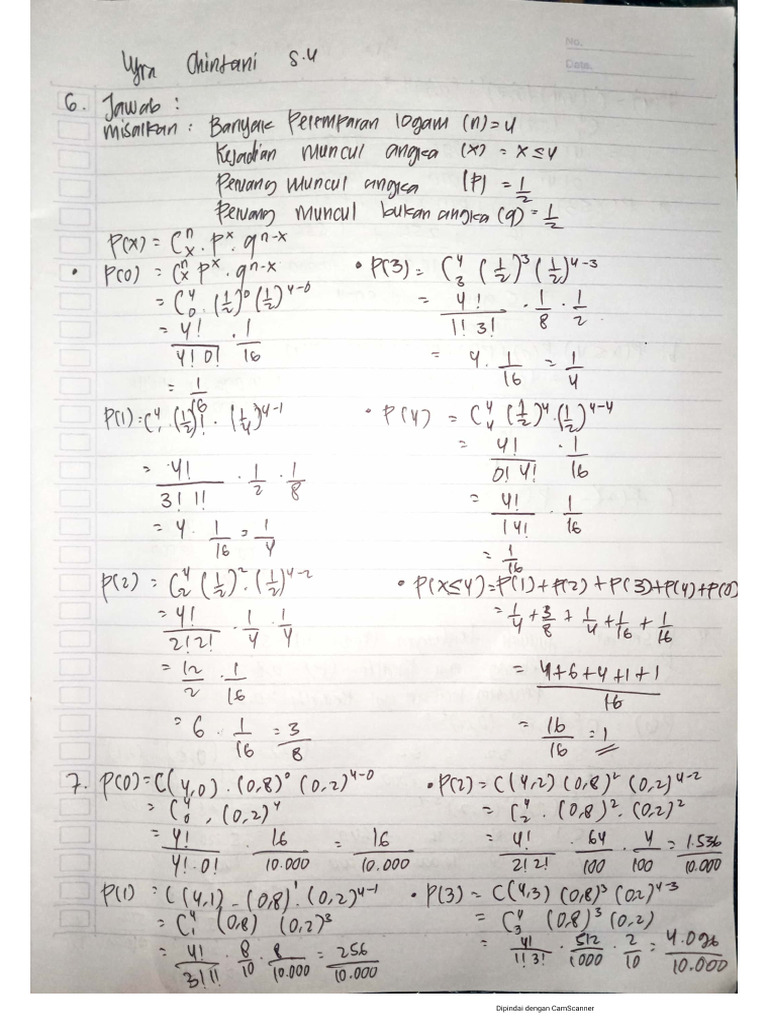 No.
Date.
Chintani S.4
6. Jawab :
misalkan : Banyak Pelemparan logam (n) = 4
Kejadian muncul angka (x) = x ≤ 4
Peluang muncul angka (P) = 1/2
Peluang muncul bukan angka (q) = 1/2
P(x) = C^n_x . P^x . q^n-x
• P(0) = C^n_x P^x . q^n-x
= C^4_0 . (1/2)^0 (1/2)^4-0
= 4!/4! 0! . 1/16
= 1/16
P(1) = C^4_1 . (1/2)! . (1/4)^4-1
= 4!/3! 1! . 1/2 . 1/8
= 4 . 1/16 = 1/4
P(2) = C^4_2 (1/2)^2 . (1/2)^4-2
= 4!/2! 2! . 1/4 . 1/4
= 12/2 . 1/16
= 6 . 1/16 = 3/8
• P(3) = C^4_3 (1/2)^3 (1/2)^4-3
= 4!/1! 3! . 1/8 . 1/2
= 4 . 1/16 = 1/4
• P(4) = C^4_4 (1/2)^4 . (1/2)^4-4
= 4!/0! 4! . 1/16
= 4!/1 4! . 1/16
= 1/16
• P(x≤4) = P(1) + P(2) + P(3) + P(4) + P(0)
= 1/4 + 3/8 + 1/4 + 1/16 + 1/16
= 4+6+4+1+1/16
= 16/16 = 1
7. P(0) = C(4,0) . (0,8)^0 (0,2)^4-0
= C^4_0 . (0,2)^4
= 4!/4! . 0! . 16/10.000 = 16/10.000
P(1) = C(4,1) - (0,8)^1 . (0,2)^4-1
= C^4_1 (0,8) (0,2)^3
= 4!/3! 1! . 8/10 . 8/10.000 = 256/10.000
• P(2) = C(4,2) (0,8)^2 (0,2)^4-2
= C^4_2 . (0,8)^2 . (0,2)^2
= 4!/2! 2! . 64/100 . 4/100 = 1.536/10.000
• P(3) = C(4,3) (0,8)^3 (0,2)^4-3
= C^4_3 (0,8)^3 (0,2)
= 4!/1! 3! . 512/1000 . 2/10 = 4.096/10.000
Dipindai dengan CamScanner